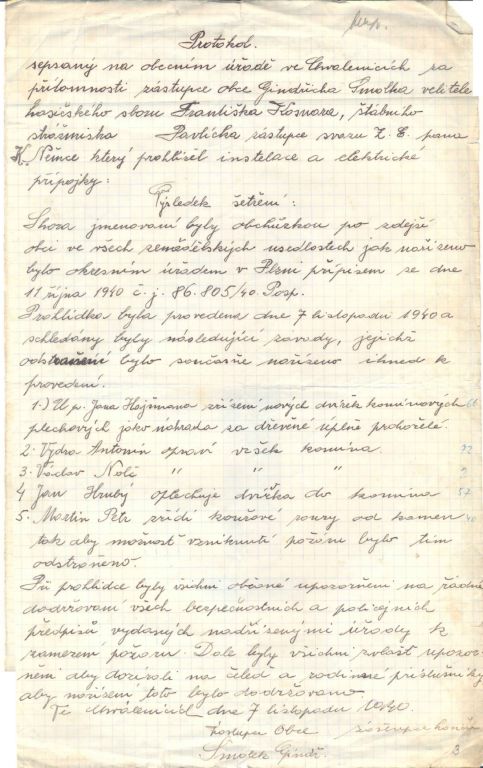 Protokol.
sepsaný na obecním úřadě ve Chválenicích za
přítomnosti zástupce obce Gindřicha Smolka velitele
hasičského sboru Františka Kosnara, štábního
strážmistra Pavlíčka zástupce svazu Z. E. pana
K. Němce který prohlížel instalace a elektrické
přípojky:
Výsledek šetření:
Shora jmenovaní byly obchůzkou po zdejší
obci ve všech zemědělských usedlostech jak nařízeno
bylo okresním úřadem v Plzni přípisem ze dne
11 října 1940 č. j. 86.805/40. Posp.
Prohlídka byla provedena dne 7 listopadu 1940 a
schledány byly následující závady, jejichž
odstranění bylo současně nařízeno ihned k
provedení.
1.) U p. Jana Hajšmana zřízení nových dvířek komínových 66
plechových jako náhrada za dřevěné uplně prohořelé.
2. Vydra Antonín opraví vršek komína. 72
3. Václav Nolč " " "
4 Jan Hrubý oplechuje dvířka do komína 57
5. Martin Petr zřídí kouřové roury od kamen 40
tak aby možnost vzniknutí požáru bylo tím
odstraněno.
Při prohlídce byly všichni občané upozorněni na řádné
dodržování všech bezpečnostních a policejních
předpisů vydaných nadřízenými úřady k
zamezení požáru. Dále byly všichni zvlášť upozor-
něni aby dozírali na čeleď a rodinné příslušníky
aby nařízení toto bylo dodržováno.
Ve Chválenicích dne 7 listopadu 1940.
Zástupce Obce zástupce
Smolek Gindř.
3